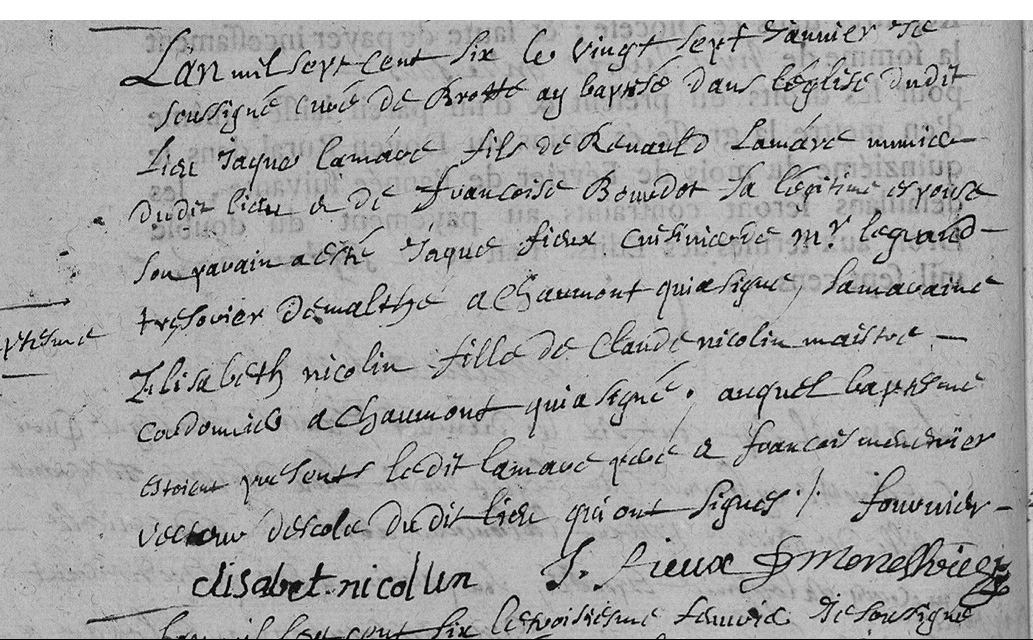 Lan mil sept cent six le vingt sept Janvier Je
soussigné curé de Brotte ay baptisé dans léglise dudit
Lieu Jaque lamare fils de Renauld Lamare
dudit lieu & de francoise Bourdot sa légitime espouse
son parain a esté Jaque fieux cuisinier de Mr legrand
tresorier demalthe a Chaumont qui a signé, la maraine
Elisabeth nicolin fille de Claude nicolin maistre
cordonnier a Chaumont qui a signé, auquel baptesme
estoient presents ledit lamare pere & francois menestrier
recteur descole dudit lieu qui ont signés ./. fournier
ptesme
elisabet. nicollin J. fieux
Lan mil sept cent six le troisiesme feuvrier Je soussigné